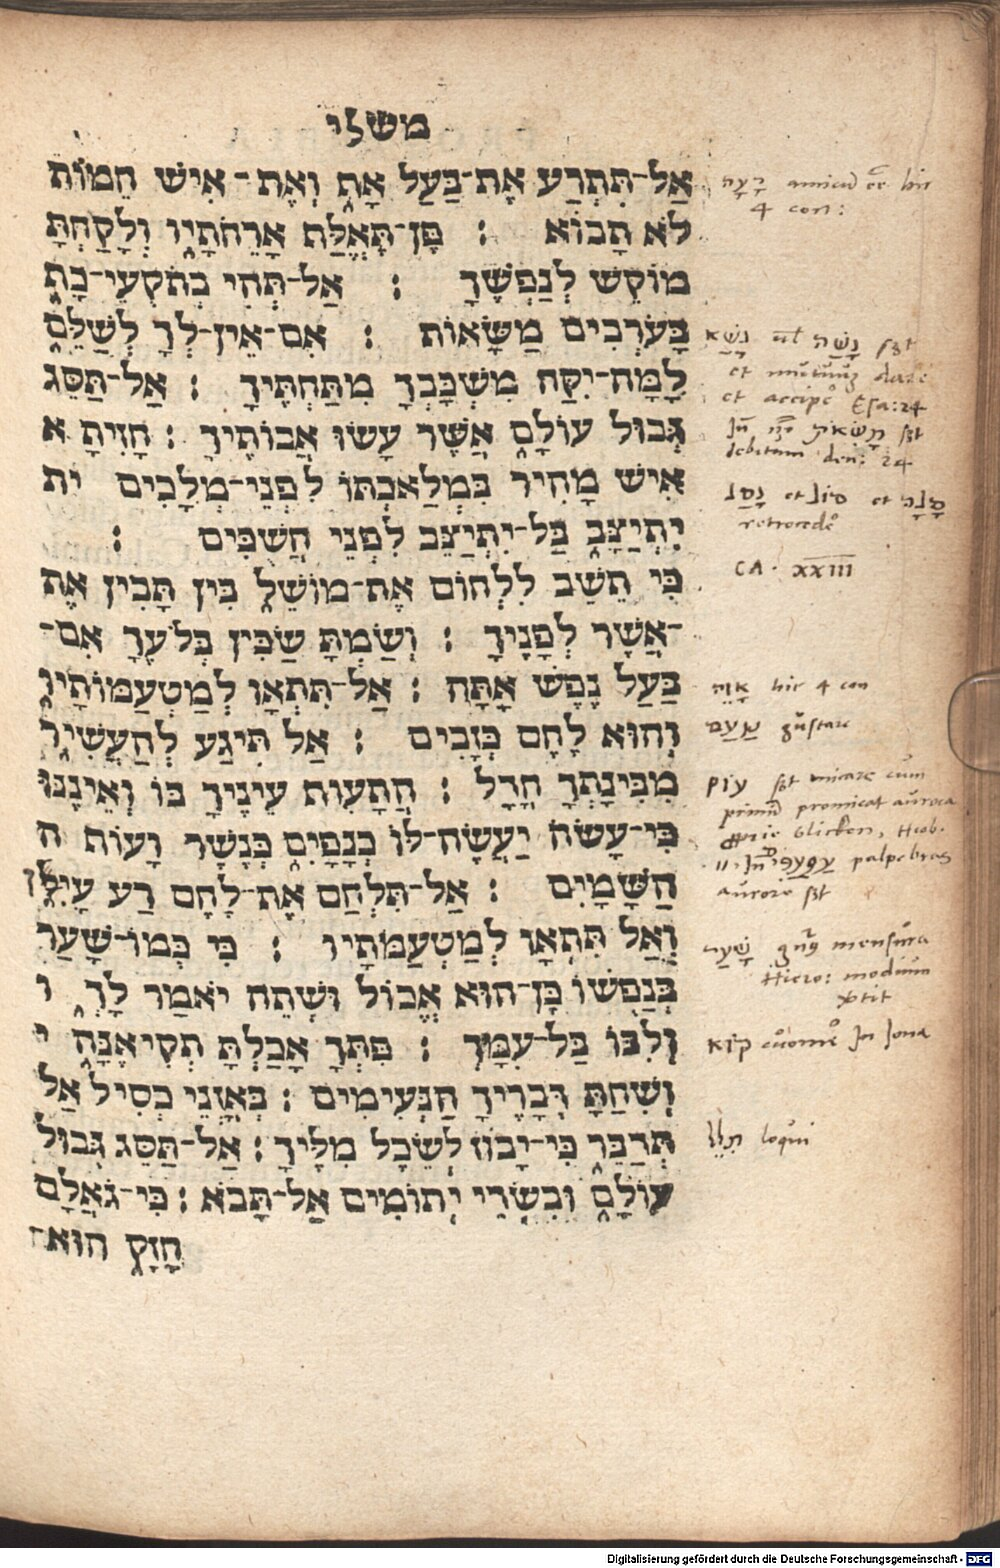 משלי
אַל־תִּתְרַע אֶת־בַּעַל אָף וְאֶת־אִישׁ חֵמוֹת
לֹא תָבוֹא : פֶּן־תֶּאֱלַף אָרְחֹתָיו וְלָקַחְתָּ
מוֹקֵשׁ לְנַפְשֶׁךָ : אַל־תְּהִי בְתֹקְעֵי־כָף
בַּעֹרְבִים מַשָּׁאוֹת : אִם־אֵין־לְךָ לְשַׁלֵּם
לָמָּה־יִקַּח מִשְׁכָּבְךָ מִתַּחְתֶּיךָ : אַל־תַּסֵּג
גְּבוּל עוֹלָם אֲשֶׁר עָשׂוּ אֲבוֹתֶיךָ : חָזִיתָ א
אִישׁ מָהִיר בִּמְלַאכְתּוֹ לִפְנֵי־מְלָכִים ית
יִתְיַצָּב בַּל־יִתְיַצֵּב לִפְנֵי חֲשֻׁכִּים :
כִּי תֵשֵׁב לִלְחוֹם אֶת־מוֹשֵׁל בִּין תָּבִין אֶת
־אֲשֶׁר לְפָנֶיךָ : וְשַׂמְתָּ שַׂכִּין בְּלֹעֶךָ אִם־
בַּעַל נֶפֶשׁ אָתָּה : אַל־תִּתְאָו לְמַטְעַמּוֹתָיו
וְהוּא לֶחֶם כְּזָבִים : אַל תִּיגַע לְהַעֲשִׁיר
מִבִּינָתְךָ חֲדָל : הֲתָעִיף עֵינֶיךָ בּוֹ וְאֵינֶנּוּ
כִּי־עָשֹׂה יַעֲשֶׂה־לּוֹ כְנָפַיִם כְּנֶשֶׁר וָעוּף ה
הַשָּׁמָיִם : אַל־תִּלְחַם אֶת־לֶחֶם רַע עָיִן
וְאַל תִּתְאָו לְמַטְעַמֹּתָיו : כִּי כְּמוֹ־שָׁעַר
בְּנַפְשׁוֹ כֶּן־הוּא אֱכוֹל וּשְׁתֵה יֹאמַר לָךְ ו
וְלִבּוֹ בַּל־עִמָּךְ : פִּתְּךָ אָכַלְתָּ תְקִיאֶנָּה י
וְשִׁחַתָּ דְּבָרֶיךָ הַנְּעִימִים : בְּאָזְנֵי כְסִיל אַל
תְּדַבֵּר כִּי־יָבוּז לְשֵׂכֶל מִלֶּיךָ : אַל־תַּסֵּג גְּבוּל
עוֹלָם וּבִשְׂדֵי יְתוֹמִים אַל־תָּבֹא : כִּי־גֹאֲלָם
חָזָק הוּא
רָעָה amicum esse hic
4 con:
נָשָׁה vel נָשָׁא sunt
et mutuum dare
et accipere Esa: 24
debitum deu: 24
סָגָה et סוג et נָסַג
retrocedere
CA. XXIII
אָוָה hic 4 con
טָעַם gustare
primum promicat aurora
palpebras
שָׁעַר mensura
Hiero: modium
קיא in Iona
מִלֵּל loqui
Digitalisierung gefördert durch die Deutsche Forschungsgemeinschaft - DFG